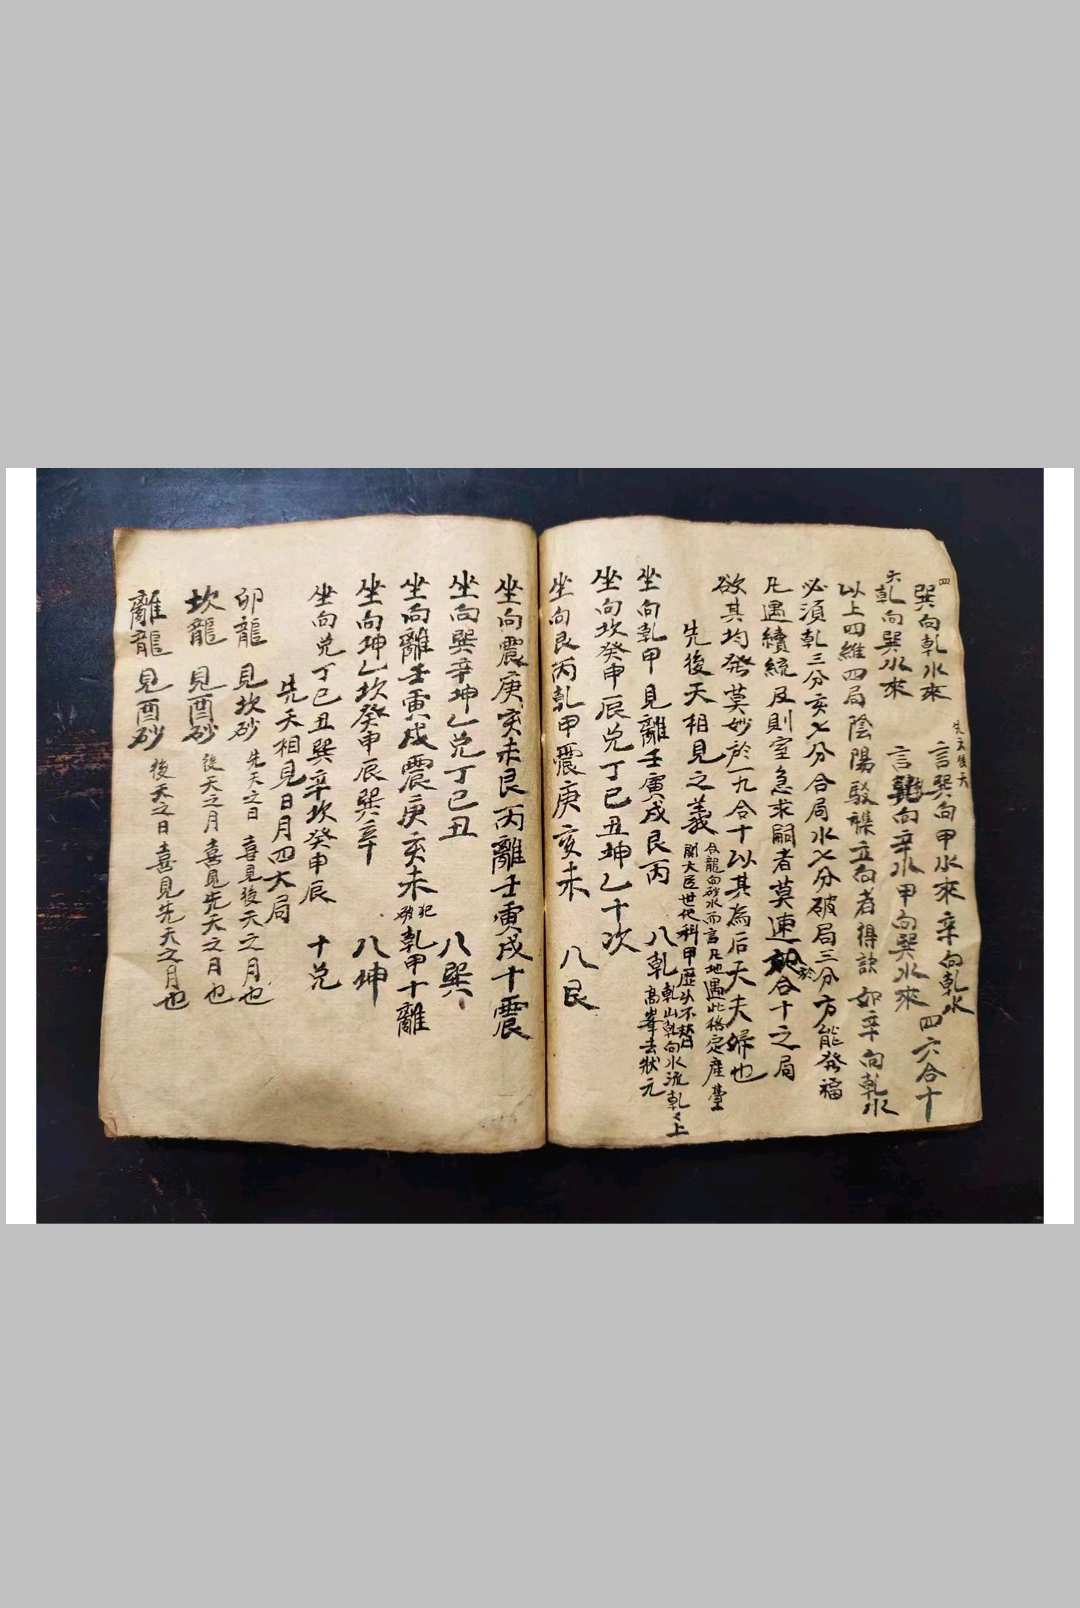 四
巽向乾水來 言巽向甲水來 辛向乾水
先天後天
天乾向巽水來 言乾向辛水甲向巽水來 四六合十
以上四維四局陰陽駁襍立向者得訣 如辛向乾水
必須乾三分亥七分合局水七分破局三分方能發福
凡遇續統及則室急求嗣者莫速於合十之局
欲其均發莫妙於一九合十以其為后天夫婦也
先後天相見之義 合龍向砂水而言凡地遇此格定產
大臣世代科甲歷以不替
坐向乾甲見離壬寅戌艮丙 八乾 乾山乾向水流乾々上
高峯去狀元
坐向坎癸申辰兑丁巳丑坤乙十次
坐向艮丙乾甲震庚亥未 八艮
坐向震庚亥未艮丙離壬寅戌十震
坐向巽辛坤乙兑丁巳丑 八巽
坐向離壬寅戌震庚亥未 犯 乾甲十離
坐向坤乙坎癸申辰巽辛 八坤
坐向兑丁巳丑巽辛坎癸申辰 十兑
先天相見日月四大局
卯龍 見坎砂 先天之日 喜見後天之月也
坎龍 見酉砂 後天之月 喜見先天之月也
離龍 見酉砂 後天之日喜見先天之月也